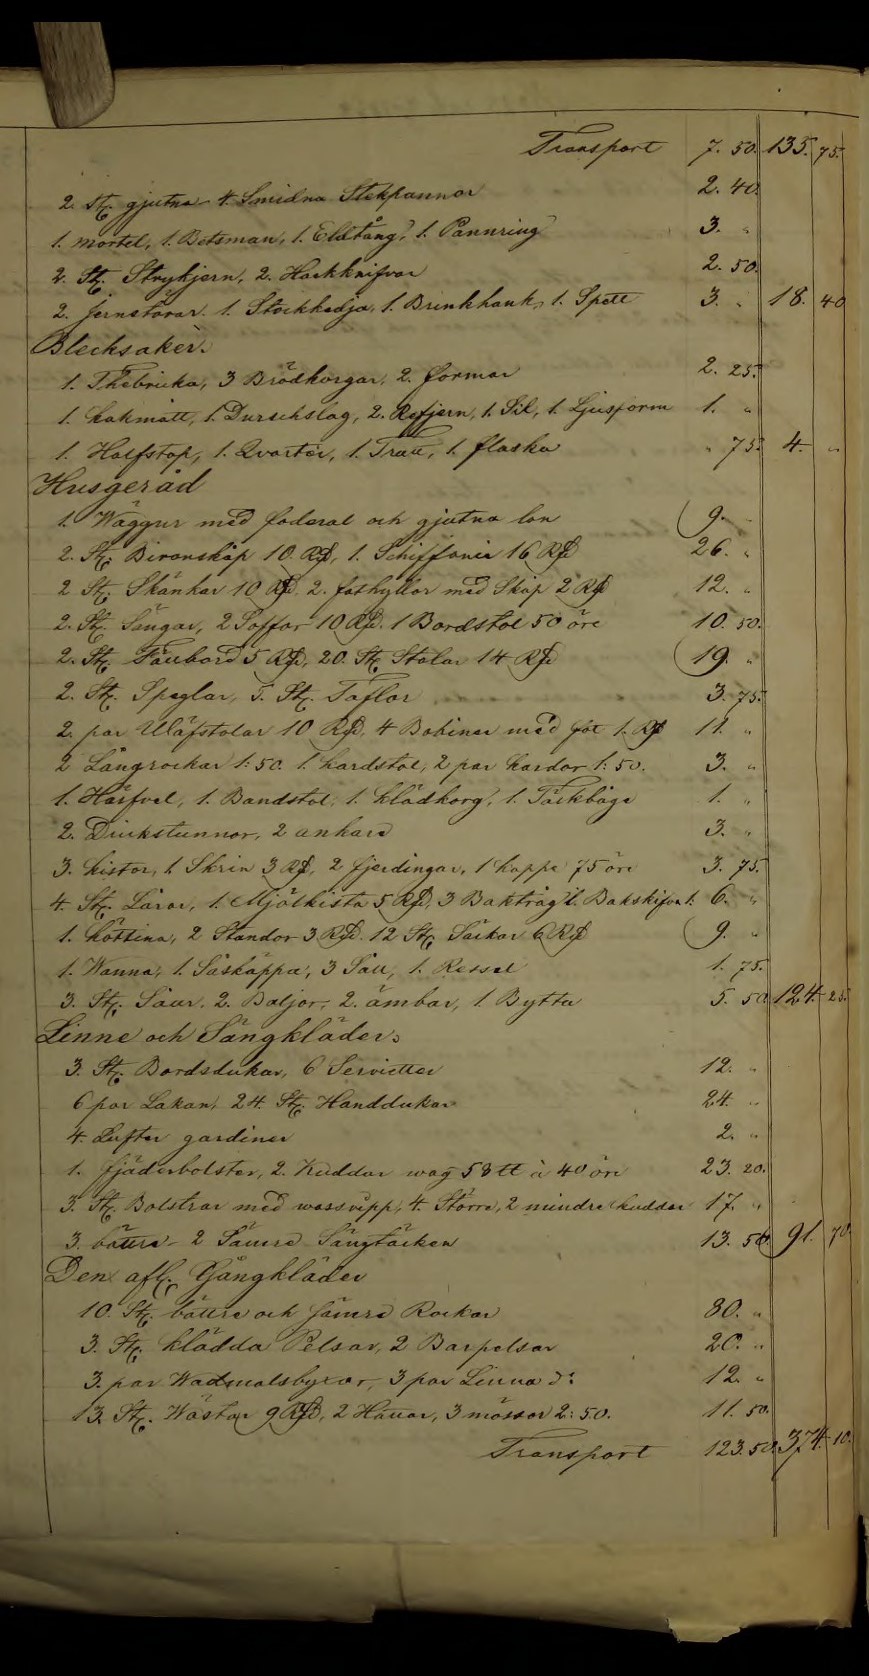 Transport 7. 50. 135. 75.
2. St. gjutna 4 Smidna Stekpannor 2. 40.
1. mortel, 1. Betsman, 1. Eldtång, 1. Pannring 3. "
2. St. Strykjern, 2. Hackknifvar 2. 50.
2. jernstörar. 1. Stockkedja, 1. Brunkhank, 1. Spett 3. " 18. 40
Blecksaker.
1. Thebricka, 3 Brödkorgar, 2. formar 2. 25.
1. kakmått, 1. Durschslag, 2. Refjern, 1. Sil, 1. Ljusform 1. "
1. Halfstop, 1. Qvarter, 1. Tratt, 1. flaska " 75. 4. "
Husgeråd
1. Wäggur med foderal och gjutna lon 9. "
2. St. Skåp 10 Rd, 1. Schiffonie 16 Rd 26. "
2 St. Skänkar 10 Rd. 2. fathyllor med Skåp 2 Rd 12. "
2. St. Sängar, 2 Soffor 10 Rd. 1 Bordstol 50 öre 10. 50.
2. St. Bord 5 Rd, 20. St. Stolar 14 Rd 19. "
2. St. Speglar, 5. St. Taflor 3. 75.
2. par Wäfstolar 10 Rd. 4 Bobiner med fot 1. Rd 11. "
2 Långrockar 1: 50. 1. kardstol, 2 par kardor 1: 50. 3. "
1. Härfvel, 1. Bandstol, 1. klädkorg, 1. Täckbåge 1. "
2. Drickstunnor, 2 ankare 3. "
3. kistor, 1 Skrin 3 Rd, 2 fjerdingar, 1 kappe 75 öre 3. 75.
4. St. Lårar, 1. Mjölkista 5 Rd, 3 Baktråg 1. Bakskifva 1. 6. "
1. 2 Standor 3 Rd. 12 St. Säckar 6 Rd 9. "
1. Wanna, 1. Såskäppa, 3 Såll, 1. Ressel 1. 75.
3. St. Såar. 2. Baljor, 2. ämbar, 1 Bytta 5. 50 124. 25.
Linne och Sängkläder.
3. St. Bordsdukar, 6 Servietter 12. "
6 par Lakan, 24. St. Handdukar 24. "
4. Lufter gardiner 2. "
1. fjäderbolster, 2. Kuddar wåg 58 tt à 40 öre 23. 20.
3. St. Bolstrar med wassvipp, 4. Större, 2 mindre kuddar 17. "
3. bättre 2 Sämre Sängtäcken 13. 50 91. 70.
Den afl. Gångkläder
10. St. bättre och sämre Rockar 80. "
3. St. klädda Pelsar, 2 Barpelsar 20. "
3. par Wadmalsbyxor, 3 par Linna d:o 12. "
13. St. Wästar 9 Rd, 2 Hattar, 3 mössor 2: 50. 11. 50.
Transport 123. 50. 374. 10.